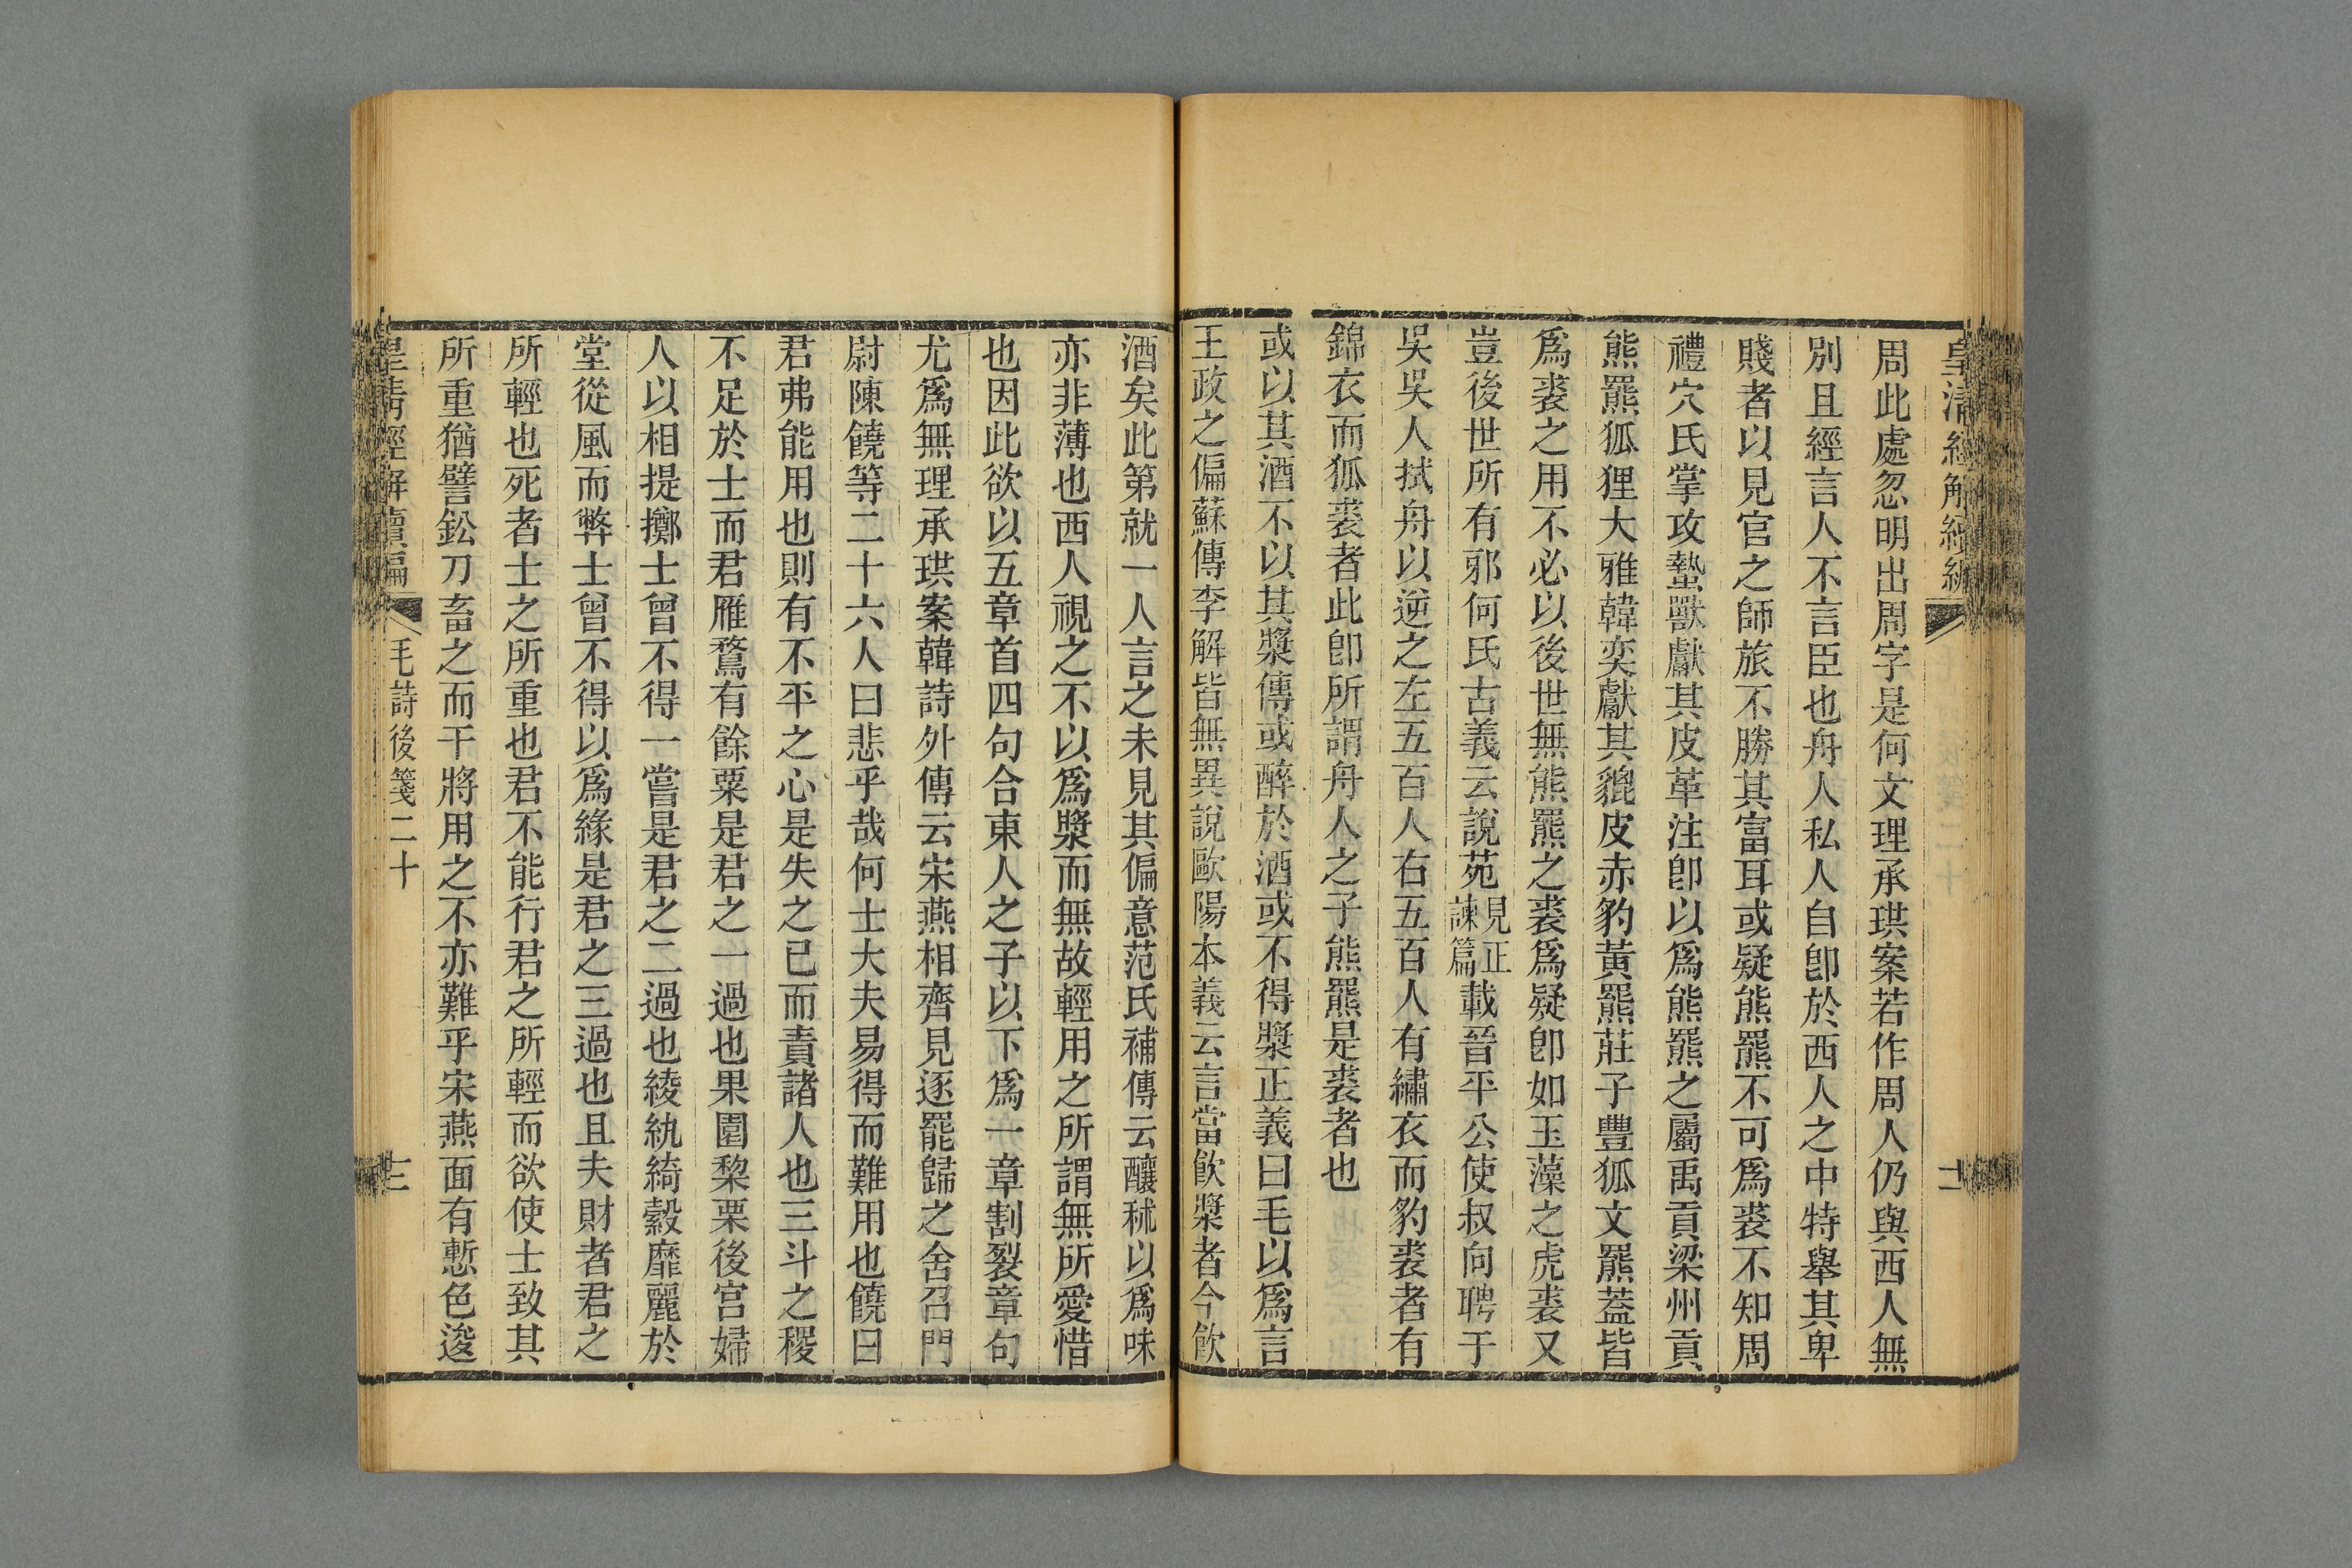 皇清經解續編
周此處忽明出周字是何文理承珙案若作周人仍與西人無
別且經言人不言臣也舟人私人自卽於西人之中特舉其卑
賤者以見官之師旅不勝其富耳或疑熊羆不可爲裘不知周
禮穴氏掌攻蟄獸獻其皮革注卽以爲熊羆之屬禹貢梁州貢
熊羆狐狸大雅韓奕獻其貔皮赤豹黃羆莊子豐狐文羆蓋皆
爲裘之用不必以後世無熊羆之裘爲疑卽如玉藻之虎裘又
豈後世所有邪何氏古義云說苑見正諫篇載晉平公使叔向聘于
吳吳人拭舟以逆之左五百人右五百人有繡衣而豹裘者有
錦衣而狐裘者此卽所謂舟人之子熊羆是裘者也
或以其酒不以其漿傳或醉於酒或不得漿正義曰毛以爲言
王政之偏蘇傳李解皆無異說歐陽本義云言當飮漿者今飮
酒矣此第就一人言之未見其偏意范氏補傳云釀秫以爲味
亦非薄也西人視之不以爲漿而無故輕用之所謂無所愛惜
也因此欲以五章首四句合東人之子以下爲一章割裂章句
尤爲無理承珙案韓詩外傳云宋燕相齊見逐罷歸之舍召門
尉陳饒等二十六人曰悲乎哉何士大夫易得而難用也饒曰
君弗能用也則有不平之心是失之已而責諸人也三斗之稷
不足於士而君雁鶩有餘粟是君之一過也果園棃栗後宮婦
人以相提擲士曾不得一嘗是君之二過也綾紈綺縠靡麗於
堂從風而弊士曾不得以爲緣是君之三過也且夫財者君之
所輕也死者士之所重也君不能行君之所輕而欲使士致其
所重猶譬鈆刀畜之而干將用之不亦難乎宋燕面有慙色逡
皇清經解續編 毛詩後箋二十